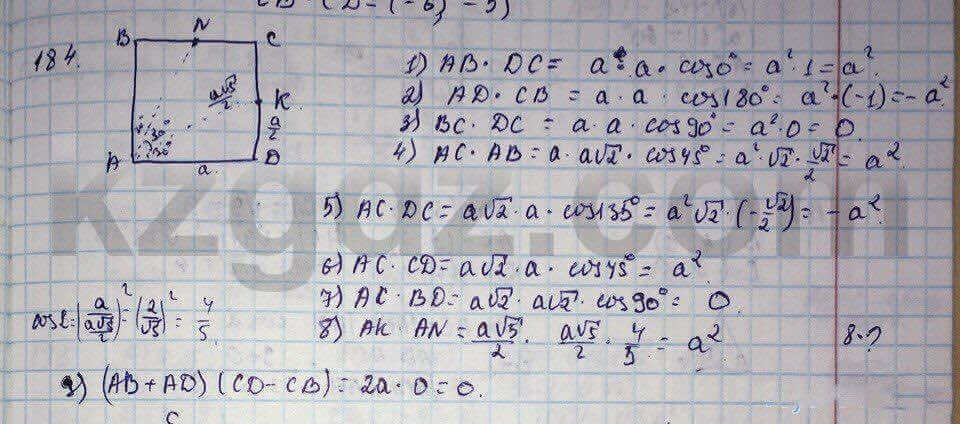 CB · CD = (-6) - 5)
184.
B N C
a√5/2 K
a/2
30°
30°
A a. D
1) AB · DC = a · a · cos0° = a² · 1 = a².
2) AD · CB = a · a · cos180° = a² · (-1) = -a²
3) BC · DC = a · a · cos90° = a² · 0 = 0.
4) AC · AB = a · a√2 · cos45° = a² · √2 · √2/2 = a².
5) AC · DC = a√2 · a · cos135° = a²√2 · (-√2/2) = -a².
6) AC · CD = a√2 · a · cos45° = a².
7) AC · BD = a√2 · a√2 · cos90° = 0.
8) AK · AN = a√5/2 · a√5/2 · 4/5 = a² 8-?
(a/(a√5/2))² = (2/√5)² = 4/5
9) (AB + AD)(CD - CB) = 2a · 0 = 0.
kzgdz.com